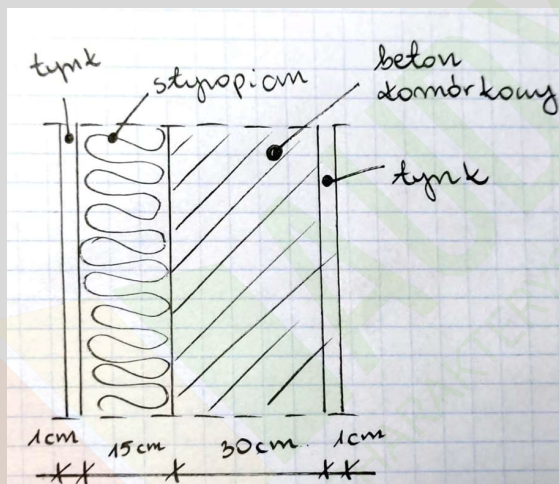 tynk
styropian
beton
komórkowy
tynk
1cm
15cm
30cm.
1cm